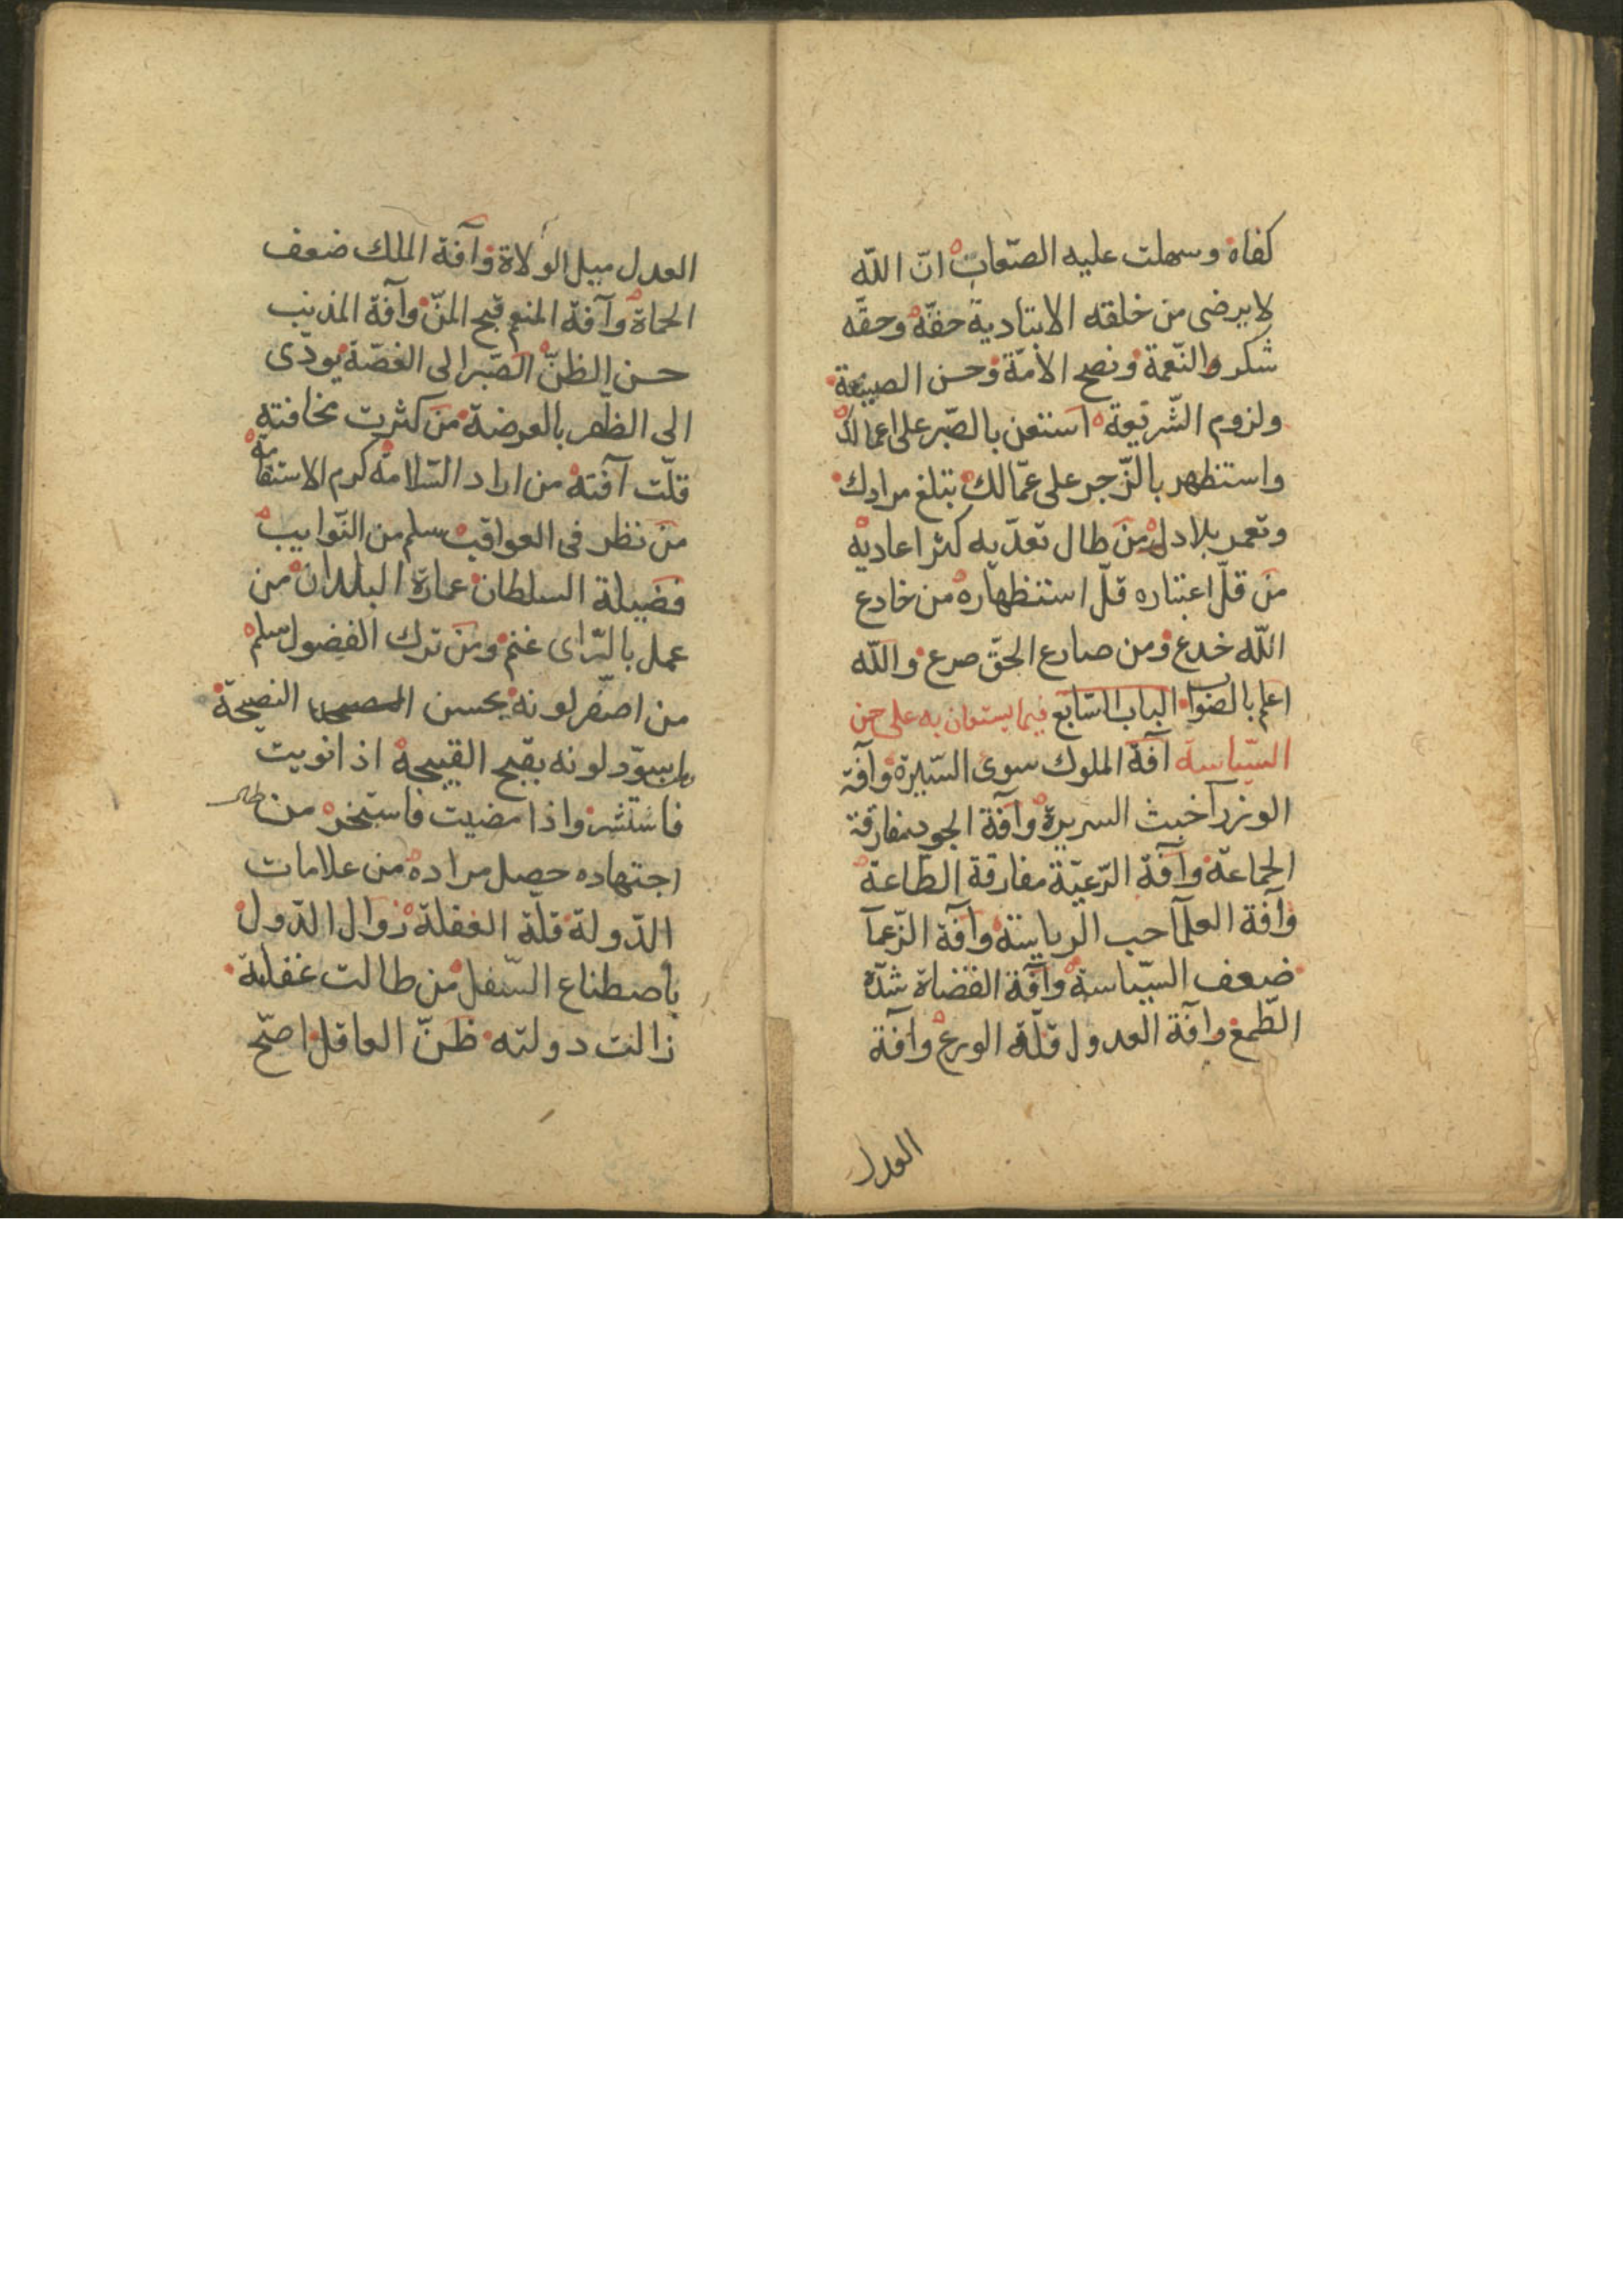 كفاه وسهلت عليه الصّعاب انّ اللّه
لا يرضى من خلقه الا بتادية حقّه وحقّه
شكر والنّعمة ونصح الامّة وحسن الصنيعة
ولزوم الشّريعة استعن بالصّبر على اعمالك
واستظهر بالزّجر على عمّالك تبلغ مرادك
وتعمر بلادك من طال تعدّيه كثر اعاديه
من قلّ اعتباره قلّ استظهاره من خادع
اللّه خدع ومن صارع الحقّ صرع واللّه
اعلم بالصواب الباب السّابع فيما يستعان به على حسن
السّياسة آفة الملوك سوى السّيرة وآفة
الوزرآ خبث السريرة وآفة الجود مفارقة
الجماعة وآفة الرّعيّة مفارقة الطّاعة
وآفة العلمآ حب الرياسة وآفة الزّعمآ
ضعف السّياسة وآفة القضاة شدّة
الطّمع وافة العدول قلّة الورع وآفة
العدل
العدل ميل الولاة وآفة الملك ضعف
الحماة وآفة المنعم قبح المنّ وآفة المذنب
حسن الظنّ الصّبر الى الغصّة يودّى
الى الظّفر بالعرضة من كثرت مخافته
قلّت آفته من اراد السّلامة كرم الاستقامة
من نظر فى العواقب سلم من النّوايب
فضيلة السلطان عمارة البلدان من
عمل بالرّاى غنم ومن ترك الفضول سلم
من اصفّر لونه يحسن النصيحة
اسودّ لونه بقبح القبيحة اذا نويت
فاستشر واذا مضيت فاستخر من طال
اجتهاده حصل مراده من علامات
الدّولة قلّة الغفلة زوال الدّول
باصطناع السّفل من طالت غفلته
زالت دولته ظنّ العاقل اصحّ